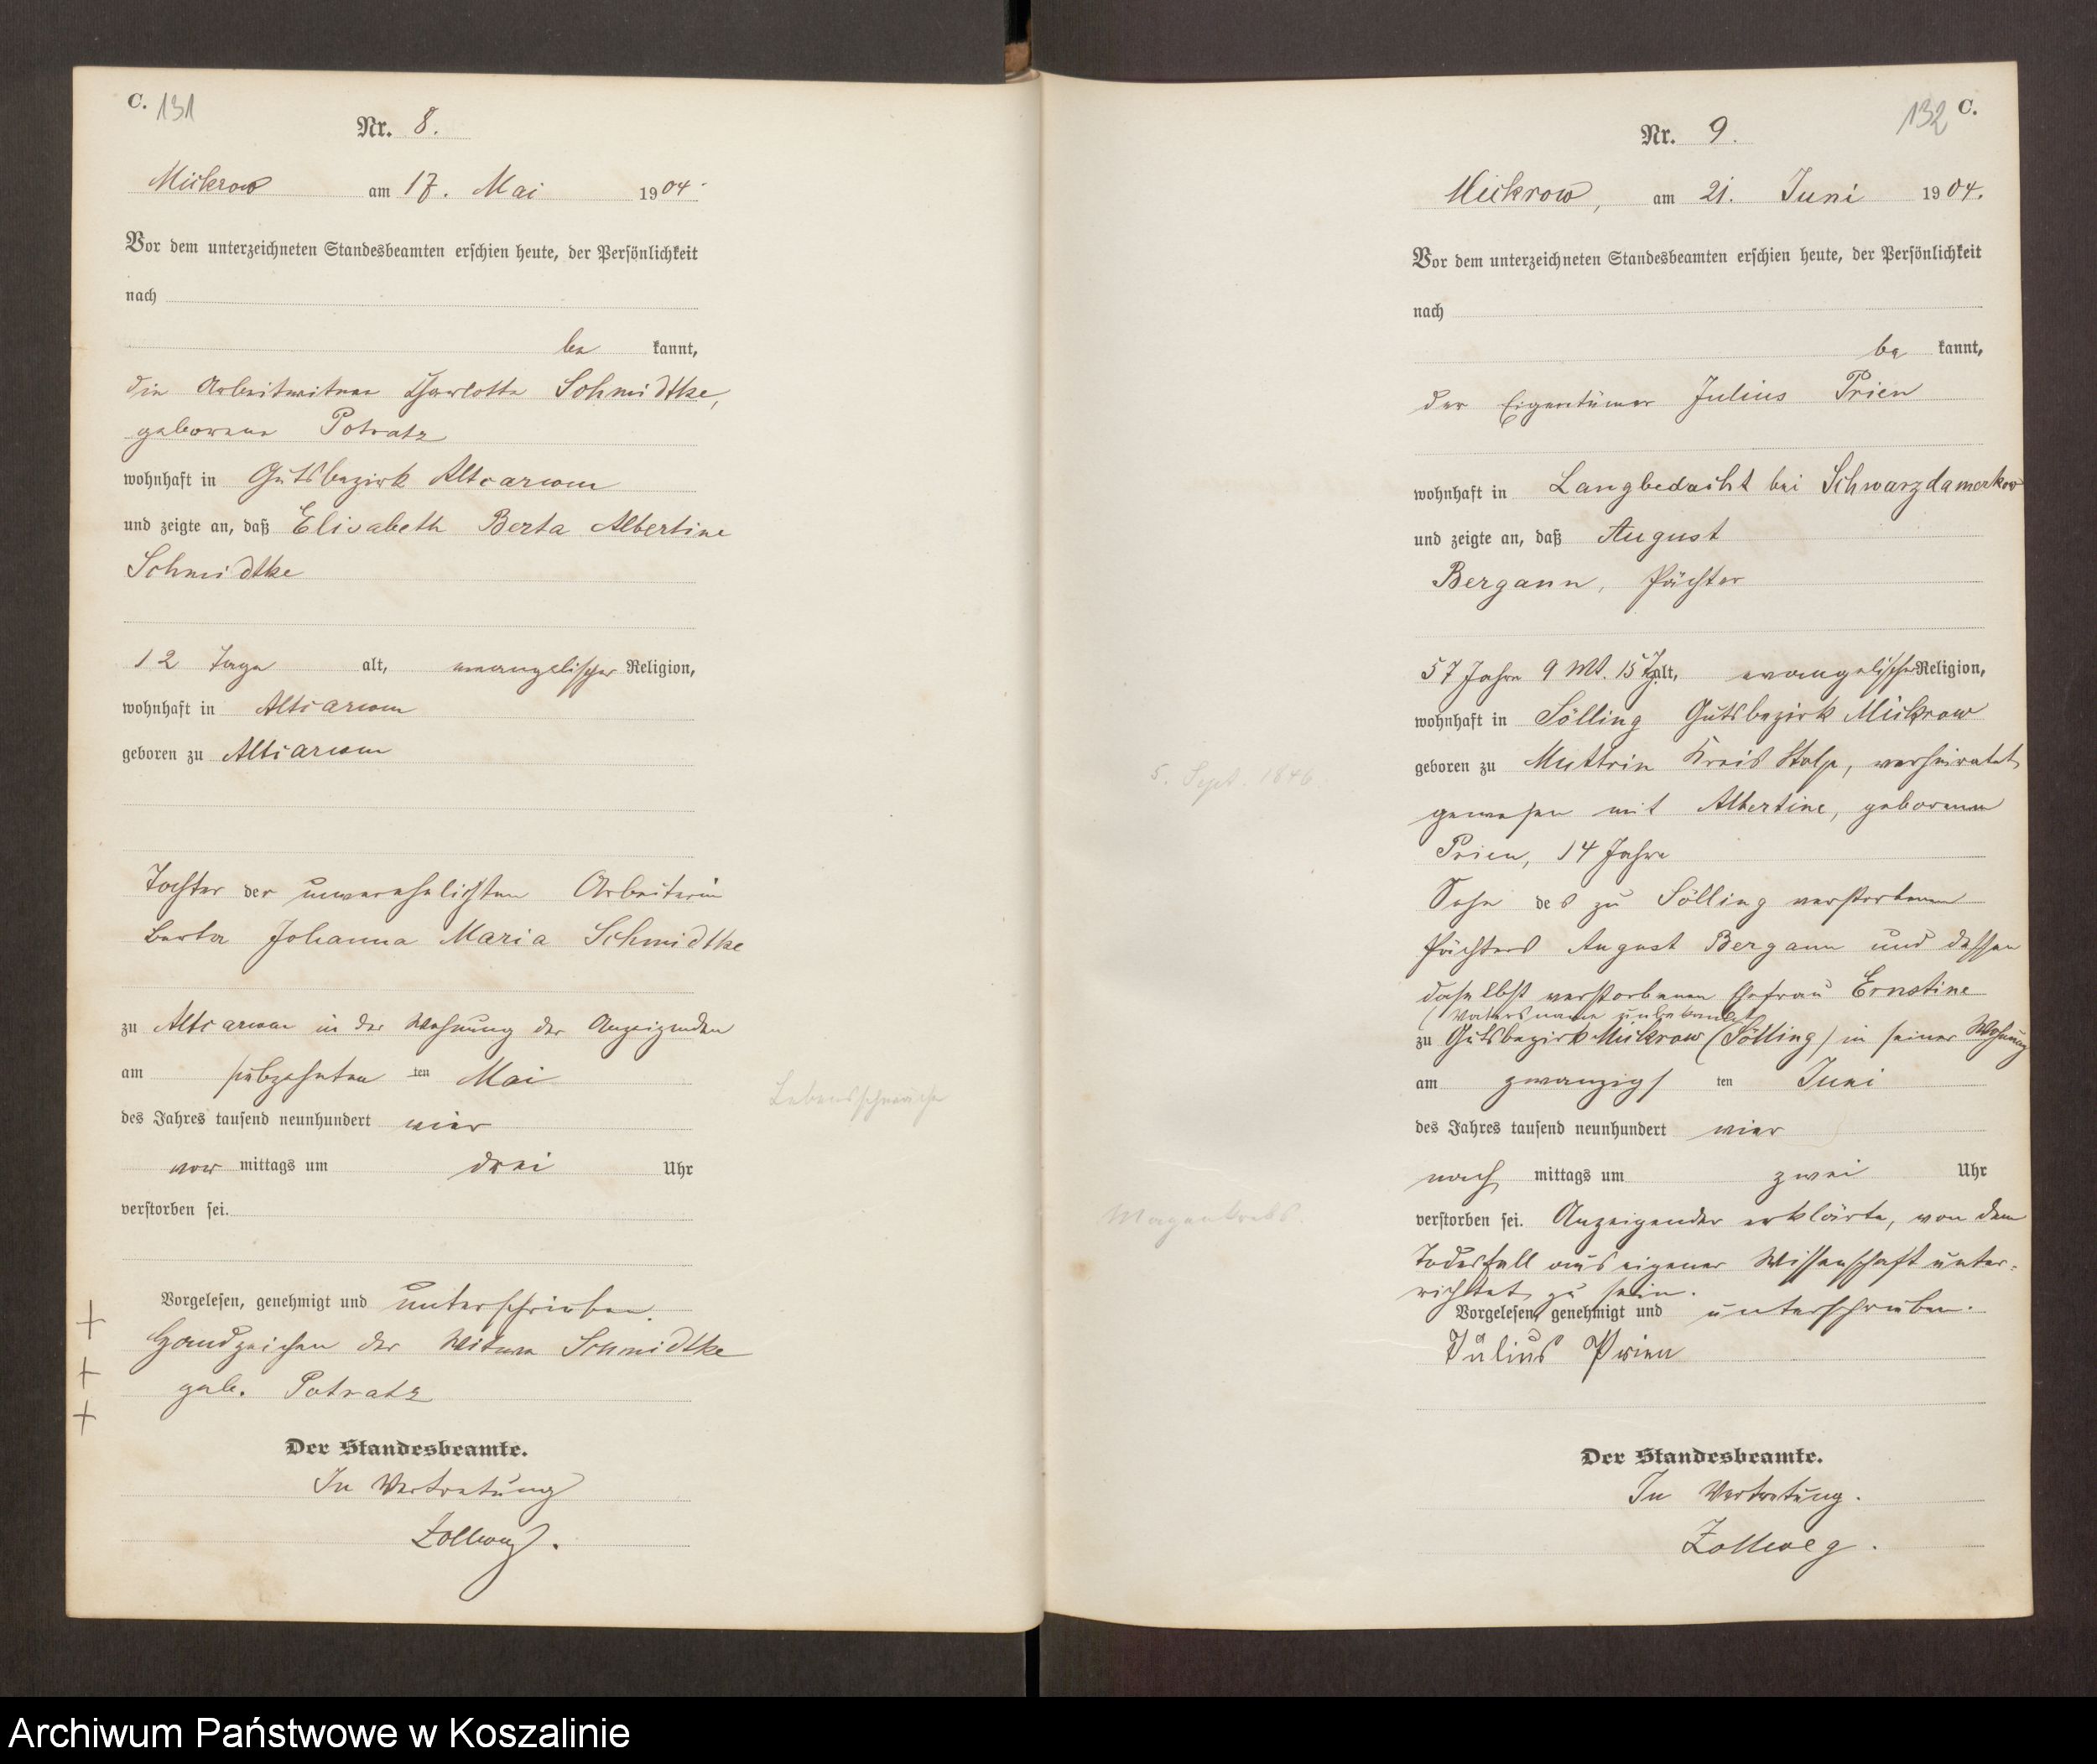 C. 131
Nr. 8.
Mickrow am 17. Mai 1904.
Vor dem unterzeichneten Standesbeamten erschien heute, der Persönlichkeit
nach
be kannt,
die Arbeiterwitwe Charlotte Schmidtke,
geborene Potratz
wohnhaft in Gutsbezirk
und zeigte an, daß Elisabeth Berta Albertine
Schmidtke
12 Tage alt, evangelischer Religion,
wohnhaft in
geboren zu
Tochter der unverehelichten Arbeiterin
Berta Johanna Maria Schmidtke
zu in der Wohnung der Anzeigenden
am siebzehnten ten Mai
des Jahres tausend neunhundert vier
vor mittags um drei Uhr
verstorben sei.
Lebensschwäche
Vorgelesen, genehmigt und unterschrieben.
+ + +
Handzeichen der Witwe Schmidtke
geb. Potratz
Der Standesbeamte.
In Vertretung
Zollweg.
132 C.
Nr. 9.
Mickrow, am 21. Juni 1904.
Vor dem unterzeichneten Standesbeamten erschien heute, der Persönlichkeit
nach
be kannt,
der Eigentümer Julius Prien
wohnhaft in Langbedacht bei Schwarzdamerkow
und zeigte an, daß August
Bergann, Pächter
57 Jahre 9 Mt. 15 Tg. alt, evangelischer Religion,
wohnhaft in Sölling Gutsbezirk Mickrow
geboren zu Muttrin Kreis Stolp, verheiratet
5. Sept. 1846
gewesen mit Albertine, geborenen
Prien, 14 Jahre
Sohn des zu Sölling verstorbenen
Pächters August Bergann und dessen
daselbst verstorbenen Ehefrau Ernstine
(Vatersname unbekannt)
zu Gutsbezirk Mickrow (Sölling) in seiner Wohnung
am zwanzigs ten Juni
des Jahres tausend neunhundert vier
nach mittags um zwei Uhr
Magenkrebs.
verstorben sei. Anzeigender erklärte, von dem
Todesfall aus eigener Wissenschaft unter-
richtet zu sein.
Vorgelesen, genehmigt und unterschrieben.
Julius Prien
Der Standesbeamte.
In Vertretung.
Zollweg.
Archiwum Państwowe w Koszalinie